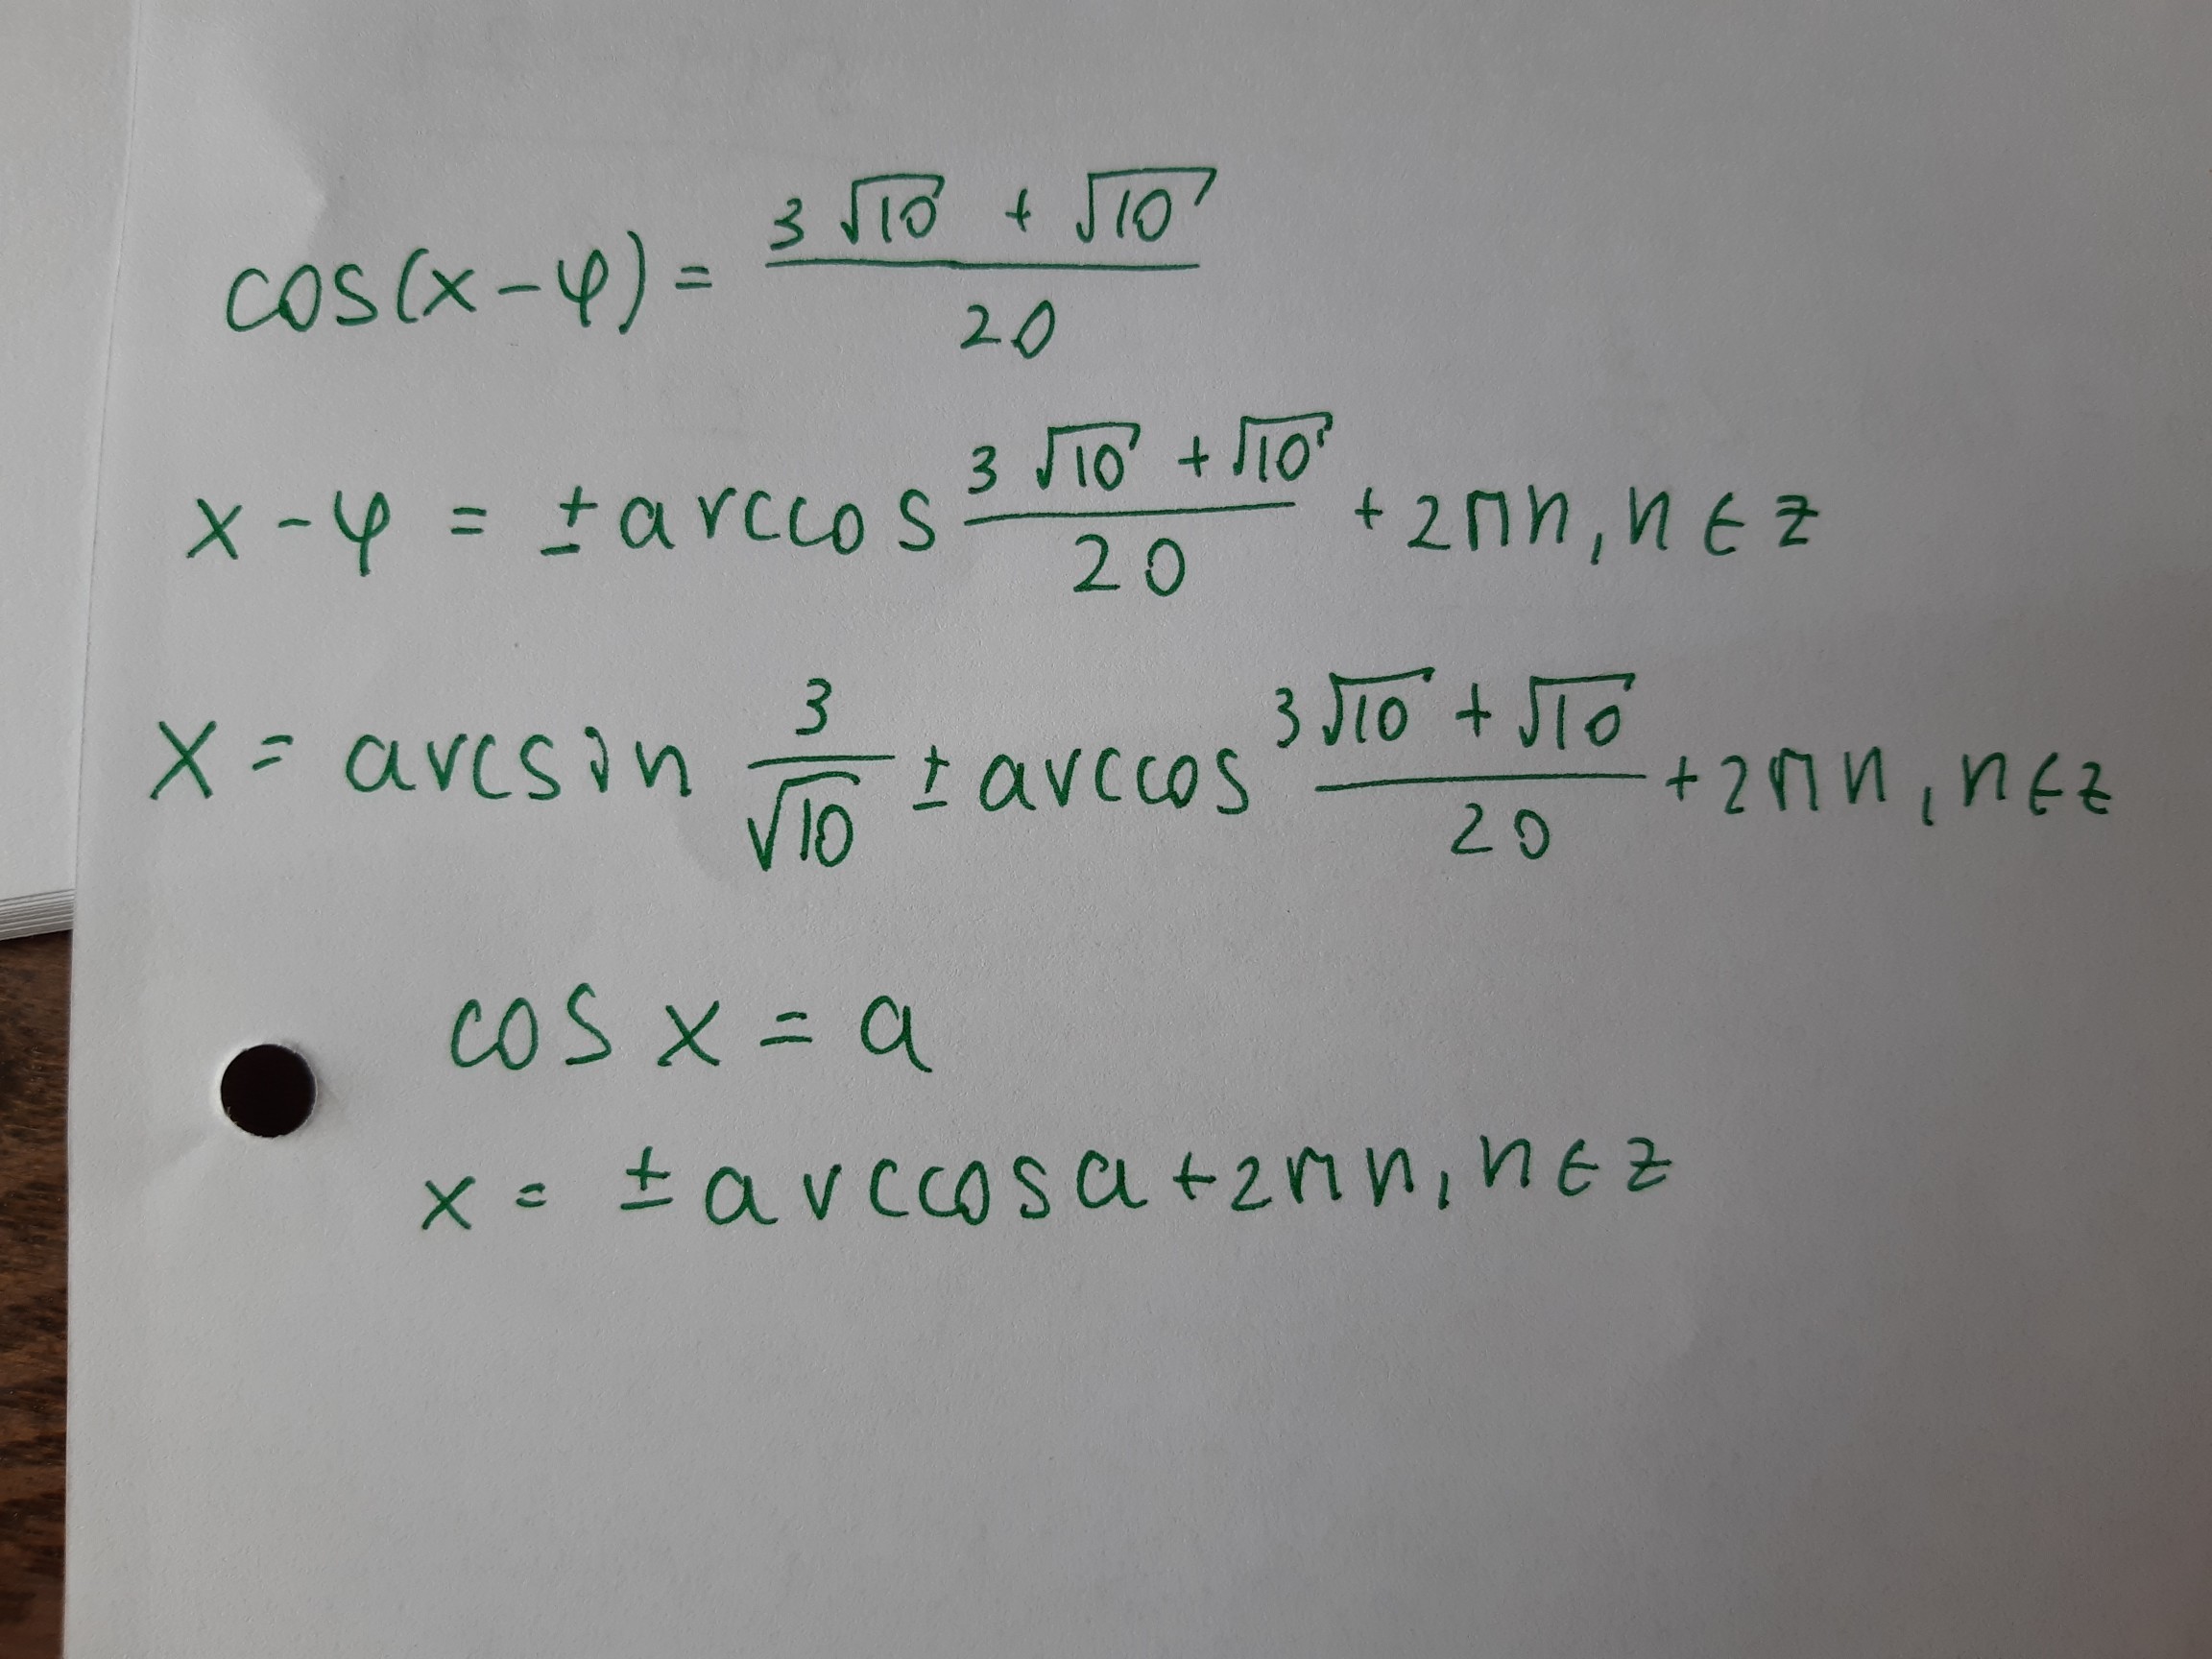 cos(x-φ) = (3√10 + √10)/20
x-φ = ± arccos (3√10 + √10)/20 + 2πn, n ∈ z
x = arcsin 3/√10 ± arccos (3√10 + √10)/20 + 2πn, n ∈ z
cos x = a
x = ± arccos a + 2πn, n ∈ z